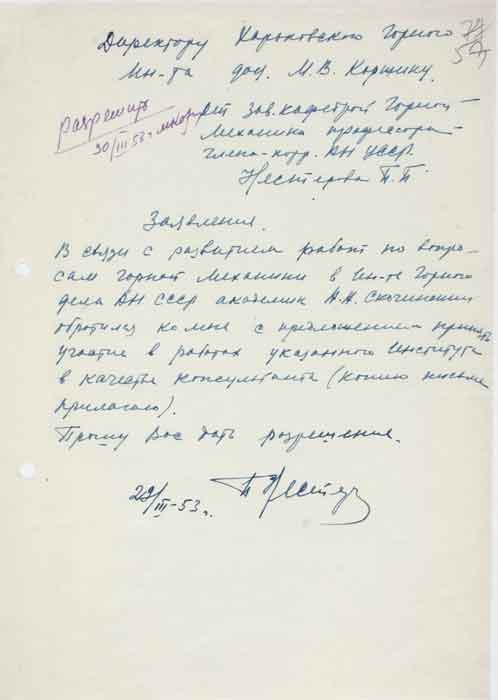 Директору Харьковского Горного
Ин-та доц. М.В. Коршику
разрешить
30/III-53 г.
от зав. кафедрой Горной
Механики профессора
члена-корр. АН УССР.
Нестерова П.П.
Заявление.
В связи с развитием работ по вопро-
сам горной механики в Ин-те Горного
дела АН СССР академик А.А. Скочинский
обратился ко мне с предложением принять
участие в работах указанного Института
в качестве консультанта (копию письма
прилагаю).
Прошу Вас дать разрешение.
29/III-53 г. П Нестеров